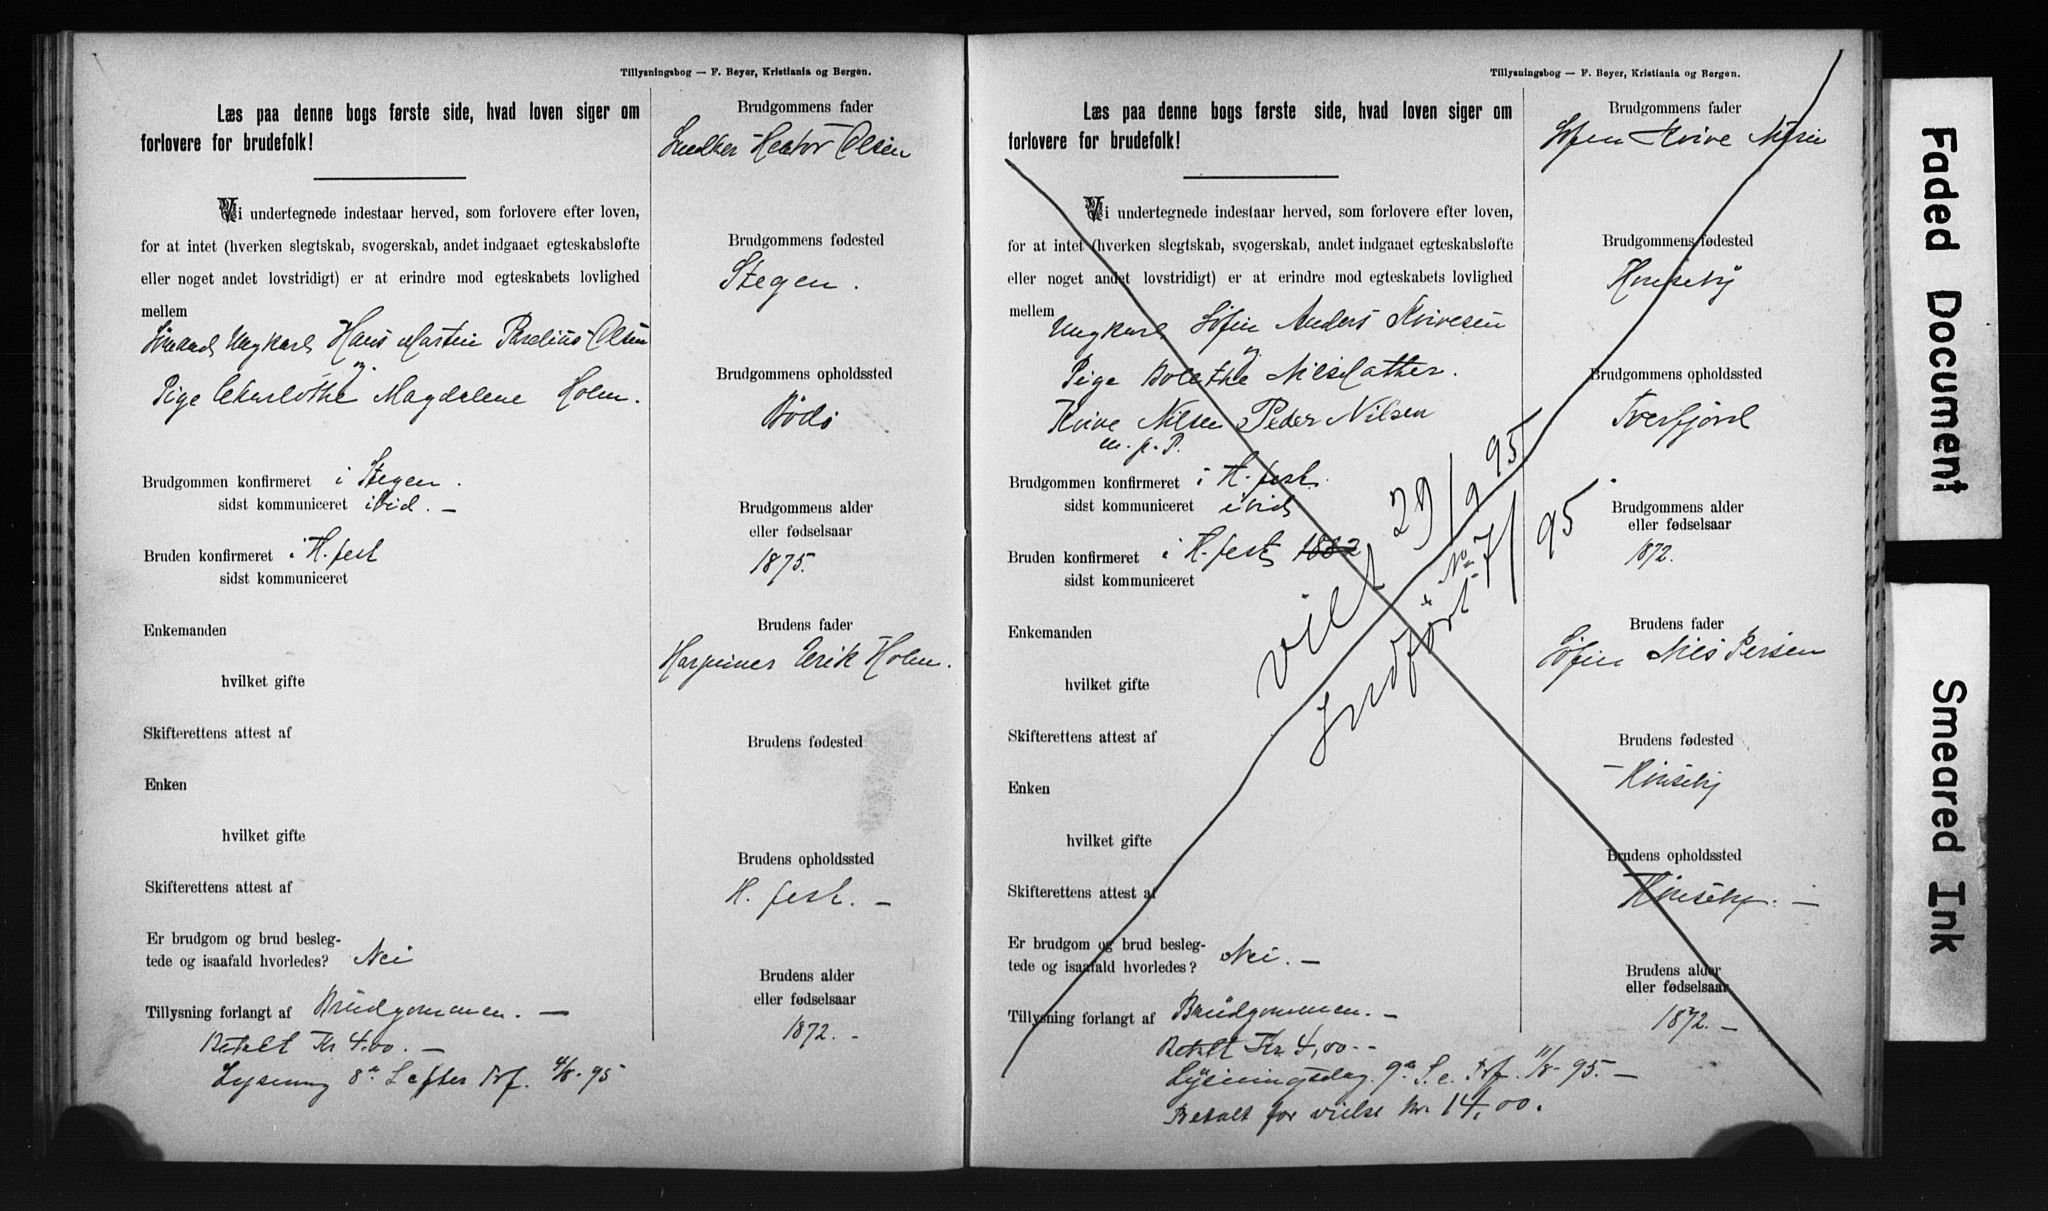 Tillysningsbog — F. Beyer, Kristiania og Bergen.
Læs paa denne bogs første side, hvad loven siger om
forlovere for brudefolk!
Vi undertegnede indestaar herved, som forlovere efter loven,
for at intet (hverken slegtskab, svogerskab, andet indgaaet egteskabsløfte
eller noget andet lovstridigt) er at erindre mod egteskabets lovlighed
mellem
Ungkarl Hans Martin Parelius Olsen
og
Pige Magdalene Holm.
Brudgommen konfirmeret i Stegen.
sidst kommuniceret ibid. —
Bruden konfirmeret i H.fest
sidst kommuniceret
Enkemanden
hvilket gifte
Skifterettens attest af
Enken
hvilket gifte
Skifterettens attest af
Er brudgom og brud besleg-
tede og isaafald hvorledes? Nei
Tillysning forlangt af Brudgommen. —
Betalt Kr 4.00. —
Lysning 8de S efter Trf. 4/8-95
Brudgommens fader
Hector Olsen
Brudgommens fødested
Stegen.
Brudgommens opholdssted
Bodø
Brudgommens alder
eller fødselsaar
1875.
Brudens fader
Erik Holm.
Brudens fødested
Brudens opholdssted
H. fest. —
Brudens alder
eller fødselsaar
1872. —
Tillysningsbog — F. Beyer, Kristiania og Bergen.
Læs paa denne bogs første side, hvad loven siger om
forlovere for brudefolk!
Vi undertegnede indestaar herved, som forlovere efter loven,
for at intet (hverken slegtskab, svogerskab, andet indgaaet egteskabsløfte
eller noget andet lovstridigt) er at erindre mod egteskabets lovlighed
mellem
Ungkarl Søfin Anders Kvivesen
og
Pige Bolethe Nilsdatter.
Kvive Nilsen Peder Nilsen
m. p. P.
Brudgommen konfirmeret i H. fest.
sidst kommuniceret ibid
Bruden konfirmeret i H. fest 1882
sidst kommuniceret
Enkemanden
hvilket gifte
Skifterettens attest af
Enken
hvilket gifte
Skifterettens attest af
Er brudgom og brud besleg-
tede og isaafald hvorledes? Nei. —
Tillysning forlangt af Brudgommen. —
Betalt Kr. 4,00. -
Lysningsdag 9de S. e. Trf. 11/8-95. —
Betalt for vielse Kr. 14,00.
viet 29/9 95
Indført No 7/95
Brudgommens fader
Søfin Kvive
Brudgommens fødested
Brudgommens opholdssted
Tverfjord
Brudgommens alder
eller fødselsaar
1872.
Brudens fader
Søfin Nils Persen
Brudens fødested
Brudens opholdssted
Brudens alder
eller fødselsaar
1872. —
Faded Document
Smeared Ink